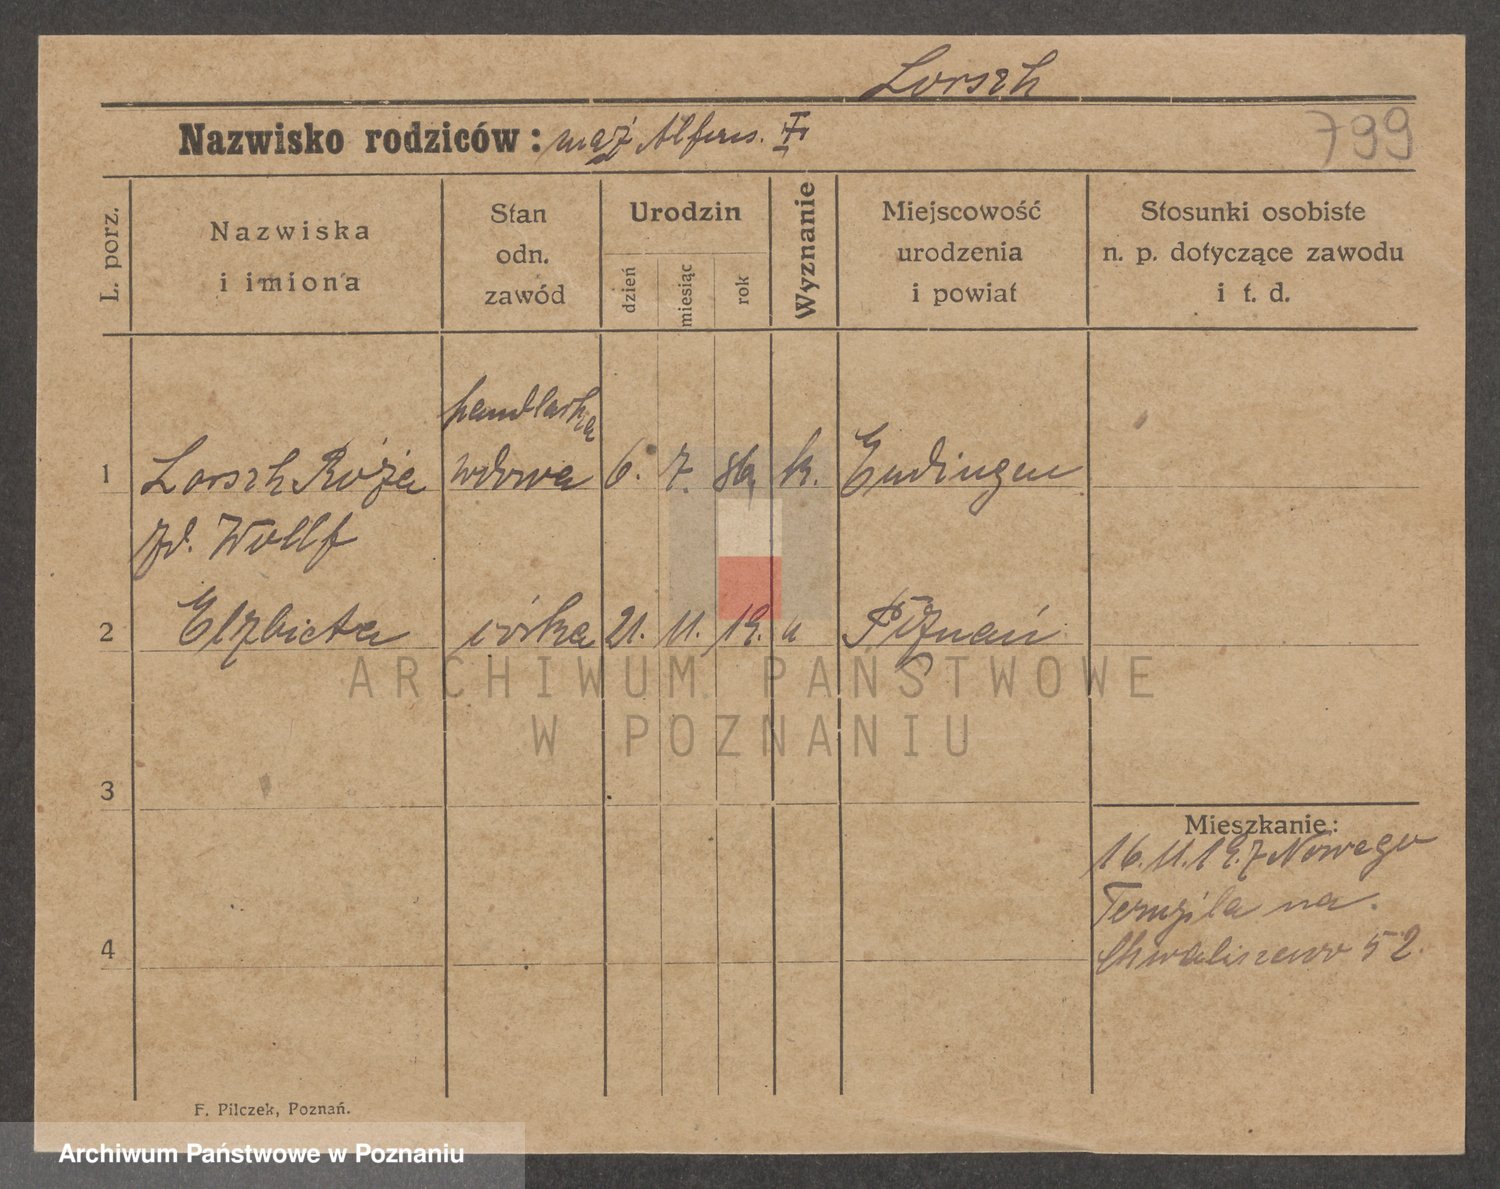 Lorszh
799
Nazwisko rodziców: mąż Alfons.
L. porz.
Nazwiska i imiona
Stan odn. zawód
Urodzin
dzień
miesiąc
rok
Wyznanie
Miejscowość urodzenia i powiat
Stosunki osobiste n. p. dotyczące zawodu i t. d.
handlarka
1 Lorszh Róża wdowa 6. 7. 86, k. Endingen
zd. Wollf
2 Elzbieta córka 21. 11. 19. u Poznań
ARCHIWUM PAŃSTWOWE
W POZNANIU
3
Mieszkanie:
16. 11. 19. z Nowego
na.
4 Chwaliszewo 52.
F. Pilczek, Poznań.
Archiwum Państwowe w Poznaniu